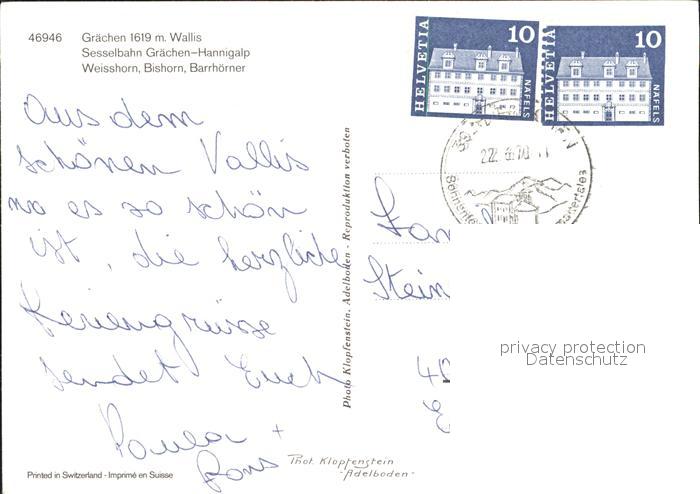 46946 Grächen 1619 m. Wallis
Sesselbahn Grächen-Hannigalp
Weisshorn, Bishorn, Barrhörner
Aus dem
schönen Vallis
wo es so schön
ist, die herzliche
Feriengrüsse
sendet Euch
Paula +
Hans
Printed in Switzerland - Imprimé en Suisse
Photo Klopfenstein, Adelboden - Reproduktion verboten
Phot. Klopfenstein
-Adelboden-
HELVETIA 10 NÄFELS
HELVETIA 10 NÄFELS
Stein
privacy protection
Datenschutz